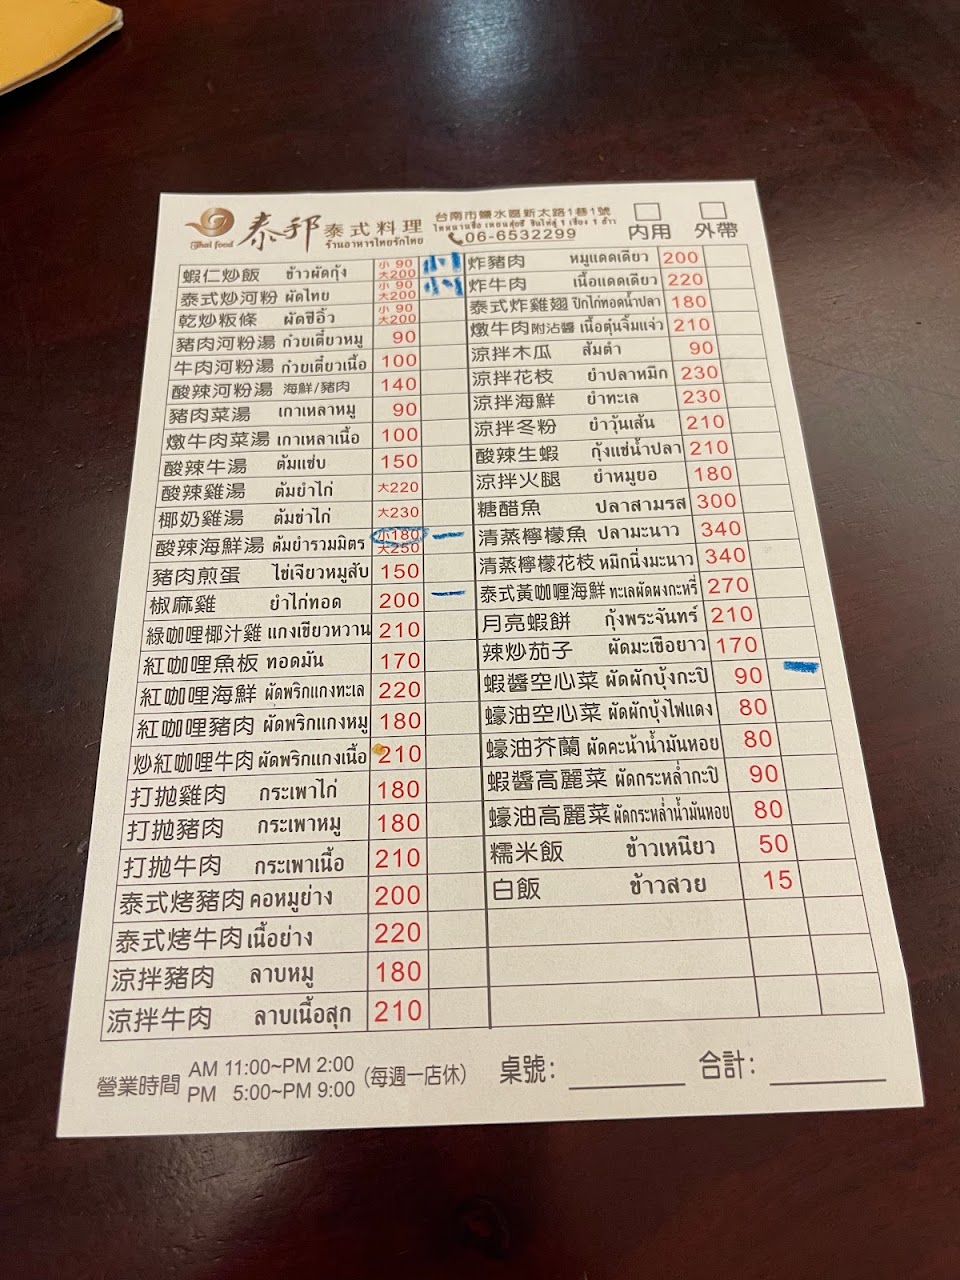 Thai food 泰邦 泰式料理
ร้านอาหารไทยรักไทย
台南市鹽水區新太路1巷1號
06-6532299
內用 外帶
蝦仁炒飯 ข้าวผัดกุ้ง 小 90 大200 小1
泰式炒河粉 ผัดไทย 小 90 大200 小1
乾炒粄條 ผัดซีอิ๊ว 小 90 大200
豬肉河粉湯 ก๋วยเตี๋ยวหมู 90
牛肉河粉湯 ก๋วยเตี๋ยวเนื้อ 100
酸辣河粉湯 海鮮/豬肉 140
豬肉菜湯 เกาเหลาหมู 90
燉牛肉菜湯 เกาเหลาเนื้อ 100
酸辣牛湯 ต้มแซ่บ 150
酸辣雞湯 ต้มยำไก่ 大220
椰奶雞湯 ต้มข่าไก่ 大230
酸辣海鮮湯 ต้มยำรวมมิตร 小180 大250 一
豬肉煎蛋 ไข่เจียวหมูสับ 150
椒麻雞 ยำไก่ทอด 200 一
綠咖哩椰汁雞 แกงเขียวหวาน 210
紅咖哩魚板 ทอดมัน 170
紅咖哩海鮮 ผัดพริกแกงทะเล 220
紅咖哩豬肉 ผัดพริกแกงหมู 180
炒紅咖哩牛肉 ผัดพริกแกงเนื้อ 210
打拋雞肉 กระเพาไก่ 180
打拋豬肉 กระเพาหมู 180
打拋牛肉 กระเพาเนื้อ 210
泰式烤豬肉 คอหมูย่าง 200
泰式烤牛肉 เนื้อย่าง 220
涼拌豬肉 ลาบหมู 180
涼拌牛肉 ลาบเนื้อสุก 210
炸豬肉 หมูแดดเดียว 200
炸牛肉 เนื้อแดดเดียว 220
泰式炸雞翅 ปีกไก่ทอดน้ำปลา 180
燉牛肉附沾醬 เนื้อตุ๋นจิ้มแจ่ว 210
涼拌木瓜 ส้มตำ 90
涼拌花枝 ยำปลาหมึก 230
涼拌海鮮 ยำทะเล 230
涼拌冬粉 ยำวุ้นเส้น 210
酸辣生蝦 กุ้งแช่น้ำปลา 210
涼拌火腿 ยำหมูยอ 180
糖醋魚 ปลาสามรส 300
清蒸檸檬魚 ปลามะนาว 340
清蒸檸檬花枝 หมึกนึ่งมะนาว 340
泰式黃咖喱海鮮 ทะเลผัดผงกะหรี่ 270
月亮蝦餅 กุ้งพระจันทร์ 210
辣炒茄子 ผัดมะเขือยาว 170
蝦醬空心菜 ผัดผักบุ้งกะปิ 90 一
蠔油空心菜 ผัดผักบุ้งไฟแดง 80
蠔油芥蘭 ผัดคะน้าน้ำมันหอย 80
蝦醬高麗菜 ผัดกระหล่ำกะปิ 90
蠔油高麗菜 ผัดกระหล่ำน้ำมันหอย 80
糯米飯 ข้าวเหนียว 50
白飯 ข้าวสวย 15
營業時間 AM 11:00~PM 2:00
PM 5:00~PM 9:00 (每週一店休) 桌號: 合計: